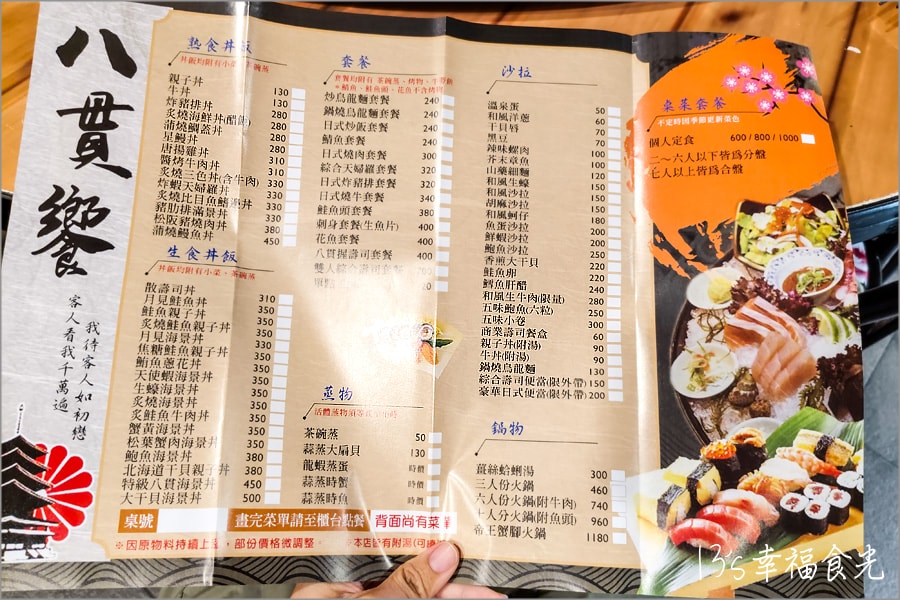 八貫饗
我待客人如初戀
客人看我千萬遍
熟食丼飯
丼飯均附有小菜、茶碗蒸
親子丼 130
牛丼 130
炸豬排丼
炙燒海鮮丼(醋飯)
蒲燒鯛蓋丼
星鰻丼
唐揚雞丼
醬烤牛肉丼
炙燒三色丼(含牛肉)
炸蝦天婦羅丼
炙燒比目魚鰭邊丼
豬肋排滿景丼
松阪豬燒肉丼 380
蒲燒鰻魚丼 450
生食丼飯
丼飯均附有小菜、茶碗蒸
散壽司丼 310
月見鮭魚丼 350
鮭魚親子丼 350
炙燒鮭魚親子丼 350
月見海景丼 350
焦糖鮭魚親子丼 350
鮪魚蔥花丼 350
天使蝦海景丼 350
生蠔海景丼 350
炙燒海景丼 350
炙鮭魚牛肉丼 350
蟹黃海景丼 350
松葉蟹肉海景丼 350
鮑魚海景丼 380
北海道干貝親子丼 380
特級八貫海景丼 450
大干貝海景丼 500
套餐
套餐均附有 茶碗蒸、烤物、生菜
炒烏龍麵套餐 240
鍋燒烏龍麵套餐 240
日式炒飯套餐 240
鯖魚套餐 240
日式燒肉套餐 300
綜合天婦羅套餐 340
日式炸豬排套餐 340
日式燒牛套餐 340
鮭魚頭套餐 380
刺身套餐(生魚片) 400
花魚套餐 400
八貫握壽司套餐 440
雙人綜合壽司套餐
蒸物
茶碗蒸 50
蒜蒸大扇貝 130
龍蝦蒸蛋 時價
蒜蒸時蟹 時價
蒜蒸時魚 時價
沙拉
溫泉蛋 50
和風洋蔥 60
干貝唇 70
黑豆 70
辣味螺肉 100
芥末章魚 100
山藥細麵 120
和風生蠔 150
和風沙拉 150
胡麻沙拉 150
和風蚵仔 180
魚蛋沙拉 180
鮮蝦沙拉 200
鮑魚沙拉 250
香煎大干貝 220
鮭魚卵 220
鱈魚肝醋 240
和風生牛肉(限量) 280
五味鮑魚(六粒) 250
五味小卷 300
商業壽司餐盒 60
親子丼(附湯) 90
牛丼(附湯) 90
鍋燒烏龍麵 130
綜合壽司便當(限外帶) 150
豪華日式便當(限外帶) 200
鍋物
薑絲蛤蜊湯 300
三人份火鍋 460
六人份火鍋(附牛肉) 740
十人分火鍋(附魚頭) 960
帝王蟹腳火鍋 1180
桌菜套餐
不定時因季節更新菜色
個人定食 600/800/1000
二～六人以下皆爲分盤
七人以上皆爲合盤
桌號 畫完菜單請至櫃台點餐 背面尚有菜單
※因原物料持續上漲，部份價格微調整。
13's幸福食光